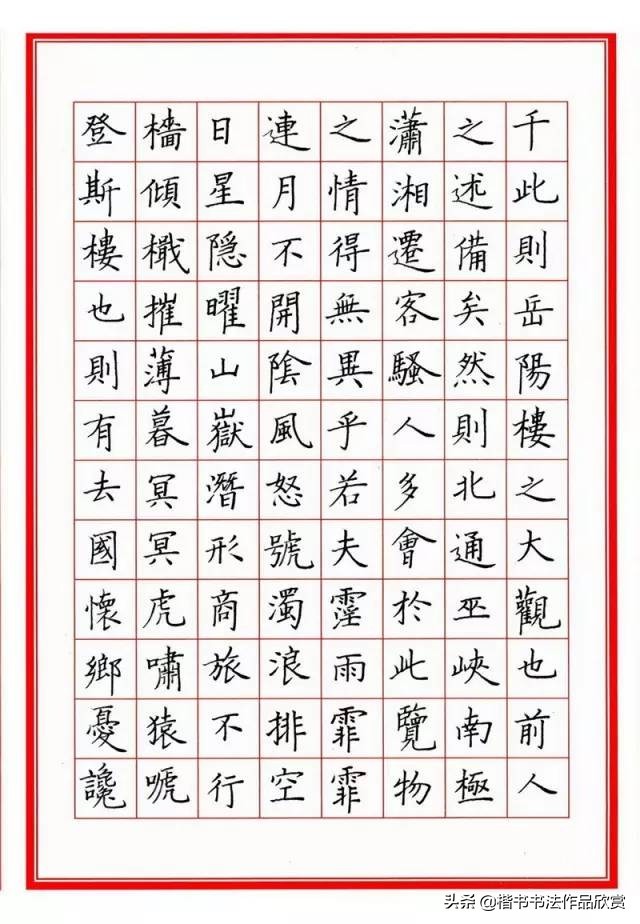 千此則岳陽樓之大觀也前人
之述備矣然則北通巫峽南極
瀟湘遷客騷人多會於此覽物
之情得無異乎若夫霪雨霏霏
連月不開陰風怒號濁浪排空
日星隐曜山嶽潛形商旅不行
檣傾檝摧薄暮冥冥虎嘯猿嗁
登斯樓也則有去國懷鄉憂讒
头条@楷书书法作品欣赏